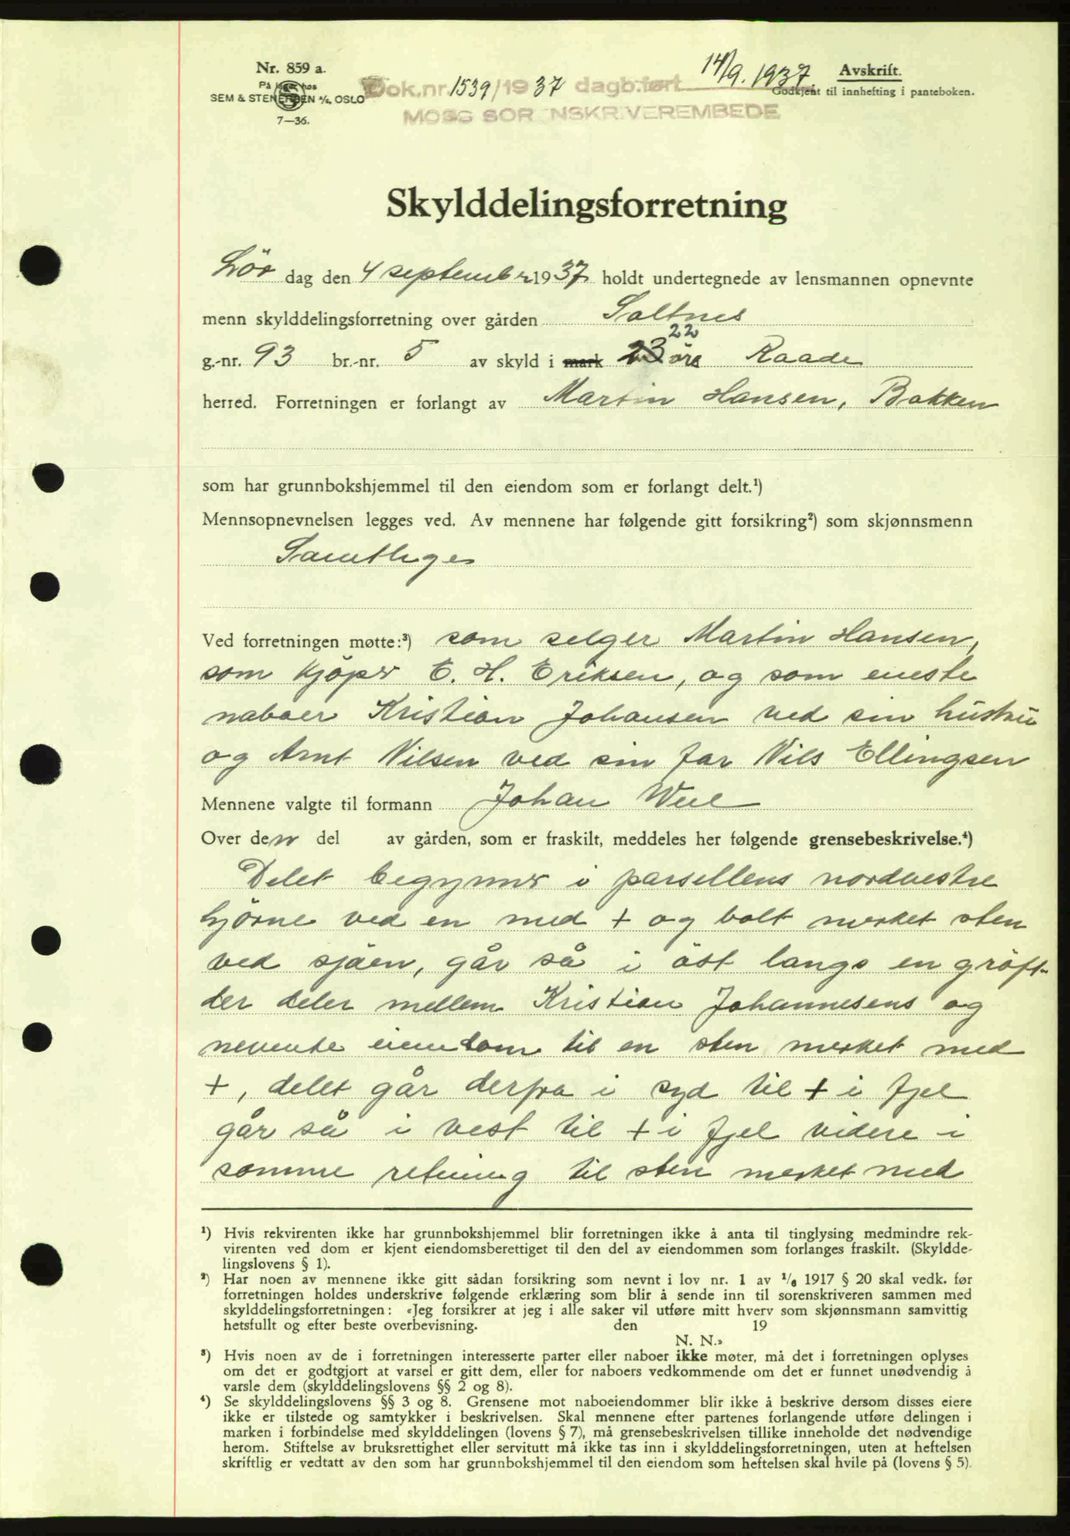 Nr. 859 a.
På lager hos
SEM & STENERSEN A/s, OSLO
7—36.
Dok.nr. 1539/1937 dagb.ført 14/9. 1937.
MOSS SORENSKRIVEREMBEDE
Avskrift.
Godkjent til innhefting i panteboken.
Skylddelingsforretning
Lör dag den 4 september 1937 holdt undertegnede av lensmannen opnevnte
menn skylddelingsforretning over gården Saltnes
22
g.-nr. 93 br.-nr. 5 av skyld i mark 23 öre Raade
herred. Forretningen er forlangt av Martin Hansen, Bakken
som har grunnbokshjemmel til den eiendom som er forlangt delt.¹)
Mennsopnevnelsen legges ved. Av mennene har følgende gitt forsikring²) som skjønnsmenn
Samtlige
Ved forretningen møtte:³) som selger Martin Hansen,
som kjöper E. H. Eriksen, og som eneste
naboer Kristian Johansen ved sin hustru
og Arnt Nilsen ved sin far Nils Ellingsen
Mennene valgte til formann Johan
Over den del av gården, som er fraskilt, meddeles her følgende grensebeskrivelse.⁴)
Delet begynner i parsellens nordvestre
hjörne ved en med + og bolt merket sten
ved sjöen, går så i öst langs en gröft
der deler mellem Kristian Johannesens og
nevente eiendom til en sten merket med
+, delet går derfra i syd til + i fjel
går så i vest til + i fjel videre i
samme retning til sten merket med
¹) Hvis rekvirenten ikke har grunnbokshjemmel blir forretningen ikke å anta til tinglysing medmindre rek-
virenten ved dom er kjent eiendomsberettiget til den del av eiendommen som forlanges fraskilt. (Skyldde-
lingslovens § 1).
²) Har noen av mennene ikke gitt sådan forsikring som nevnt i lov nr. 1 av 1/6 1917 § 20 skal vedk. før
forretningen holdes underskrive følgende erklæring som blir å sende inn til sorenskriveren sammen med
skylddelingsforretningen: «Jeg forsikrer at jeg i alle saker vil utføre mitt hverv som skjønnsmann samvittig
hetsfullt og efter beste overbevisning. den 19
N. N.»
³) Hvis noen av de i forretningen interesserte parter eller naboer ikke møter, må det i forretningen oplyses
om det er godtgjort at varsel er gitt dem, eller for naboers vedkommende om det er funnet unødvendig å
varsle dem (skylddelingslovens §§ 2 og 8).
⁴) Se skylddelingslovens §§ 3 og 8. Grensene mot naboeiendommer blir ikke å beskrive dersom disses eiere
ikke er tilstede og samtykker i beskrivelsen. Skal mennene efter partenes forlangende utføre delingen i
marken i forbindelse med skylddelingen (lovens § 7), må grensebeskrivelsen tillike inneholde det nødvendige
herom. Stiftelse av bruksrettighet eller servitutt må ikke tas inn i skylddelingsforretningen, uten at heftelsen
skriftlig er vedtatt av den som har grunnbokshjemmel til den eiendom som heftelsen skal hvile på (lovens § 5).